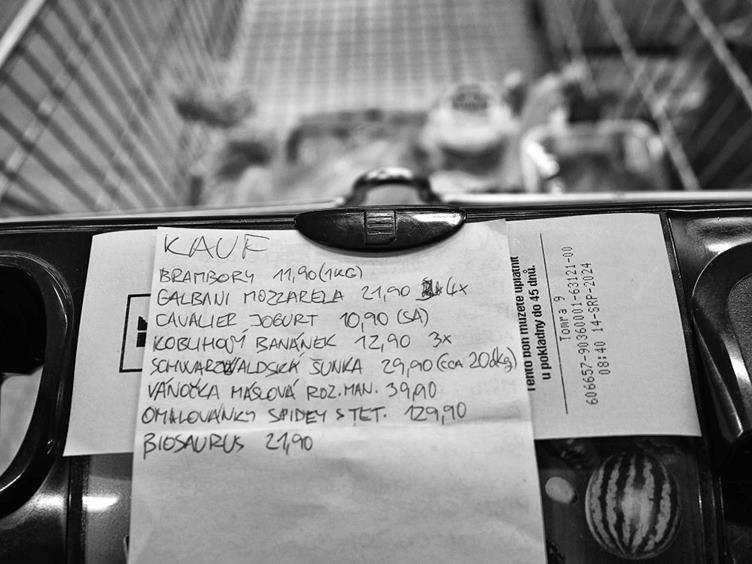 KAUF
BRAMBORY 11,90 (1KG)
GALBANI MOZZARELA 21,90 4x
CAVALIER JOGURT 10,90 (SA)
KOBLIHOVÝ BANÁNEK 12,90 3x
SCHWARZWALDSKÁ ŠUNKA 29,90 (CCA 20dkg)
VÁNOČKA MÁSLOVÁ ROZ. MAN. 39,90
OMALOVÁNKY SPIDEY S TET. 129,90
BIOSAURUS 21,90
Tento bon muzete uplatnit
u pokladny do 45 dnů.
Tomra 9
606657-90360001-63121-00
08:40 14-SRP-2024